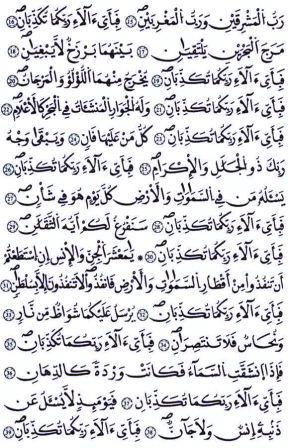 رَبُّ الْمَشْرِقَيْنِ وَرَبُّ الْمَغْرِبَيْنِ ١٥ فَبِأَيِّ ءَالَآءِ رَبِّكُمَا تُكَذِّبَانِ ١٦
مَرَجَ الْبَحْرَيْنِ يَلْتَقِيَانِ ١٧ بَيْنَهُمَا بَرْزَخٌ لَّا يَبْغِيَانِ ١٨
فَبِأَيِّ ءَالَآءِ رَبِّكُمَا تُكَذِّبَانِ ١٩ يُخْرَجُ مِنْهُمَا اللُّؤْلُؤُ وَالْمَرْجَانُ ٢٠
فَبِأَيِّ ءَالَآءِ رَبِّكُمَا تُكَذِّبَانِ ٢١ وَلَهُ الْجَوَارِ الْمُنشَـَٔاتُ فِي الْبَحْرِ كَالْأَعْلَٰمِ ٢٢
فَبِأَيِّ ءَالَآءِ رَبِّكُمَا تُكَذِّبَانِ ٢٣ كُلُّ مَنْ عَلَيْهَا فَانٍ ٢٤ وَيَبْقَىٰ وَجْهُ
رَبِّكَ ذُو الْجَلَٰلِ وَالْإِكْرَامِ ٢٥ فَبِأَيِّ ءَالَآءِ رَبِّكُمَا تُكَذِّبَانِ ٢٦
يَسْـَٔلُهُ مَن فِي السَّمَٰوَٰتِ وَالْأَرْضِ كُلَّ يَوْمٍ هُوَ فِي شَأْنٍ ٢٧
فَبِأَيِّ ءَالَآءِ رَبِّكُمَا تُكَذِّبَانِ ٢٨ سَنَفْرُغُ لَكُمْ أَيُّهَ الثَّقَلَٰنِ ٢٩
فَبِأَيِّ ءَالَآءِ رَبِّكُمَا تُكَذِّبَانِ ٣٠ يَٰمَعْشَرَ الْجِنِّ وَالْإِنسِ إِنِ اسْتَطَعْتُمْ
أَن تَنفُذُوا مِنْ أَقْطَارِ السَّمَٰوَٰتِ وَالْأَرْضِ فَانفُذُوا لَا تَنفُذُونَ إِلَّا بِسُلْطَٰنٍ ٣١
فَبِأَيِّ ءَالَآءِ رَبِّكُمَا تُكَذِّبَانِ ٣٢ يُرْسَلُ عَلَيْكُمَا شُوَاظٌ مِّن نَّارٍ ٣٣
وَنُحَاسٌ فَلَا تَنتَصِرَانِ ٣٤ فَبِأَيِّ ءَالَآءِ رَبِّكُمَا تُكَذِّبَانِ ٣٥
فَإِذَا انشَقَّتِ السَّمَآءُ فَكَانَتْ وَرْدَةً كَالدِّهَانِ ٣٦
فَبِأَيِّ ءَالَآءِ رَبِّكُمَا تُكَذِّبَانِ ٣٧ فَيَوْمَئِذٍ لَّا يُسْـَٔلُ عَن
ذَنۢبِهِ إِنسٌ وَلَا جَآنٌّ ٣٨ فَبِأَيِّ ءَالَآءِ رَبِّكُمَا تُكَذِّبَانِ ٣٩